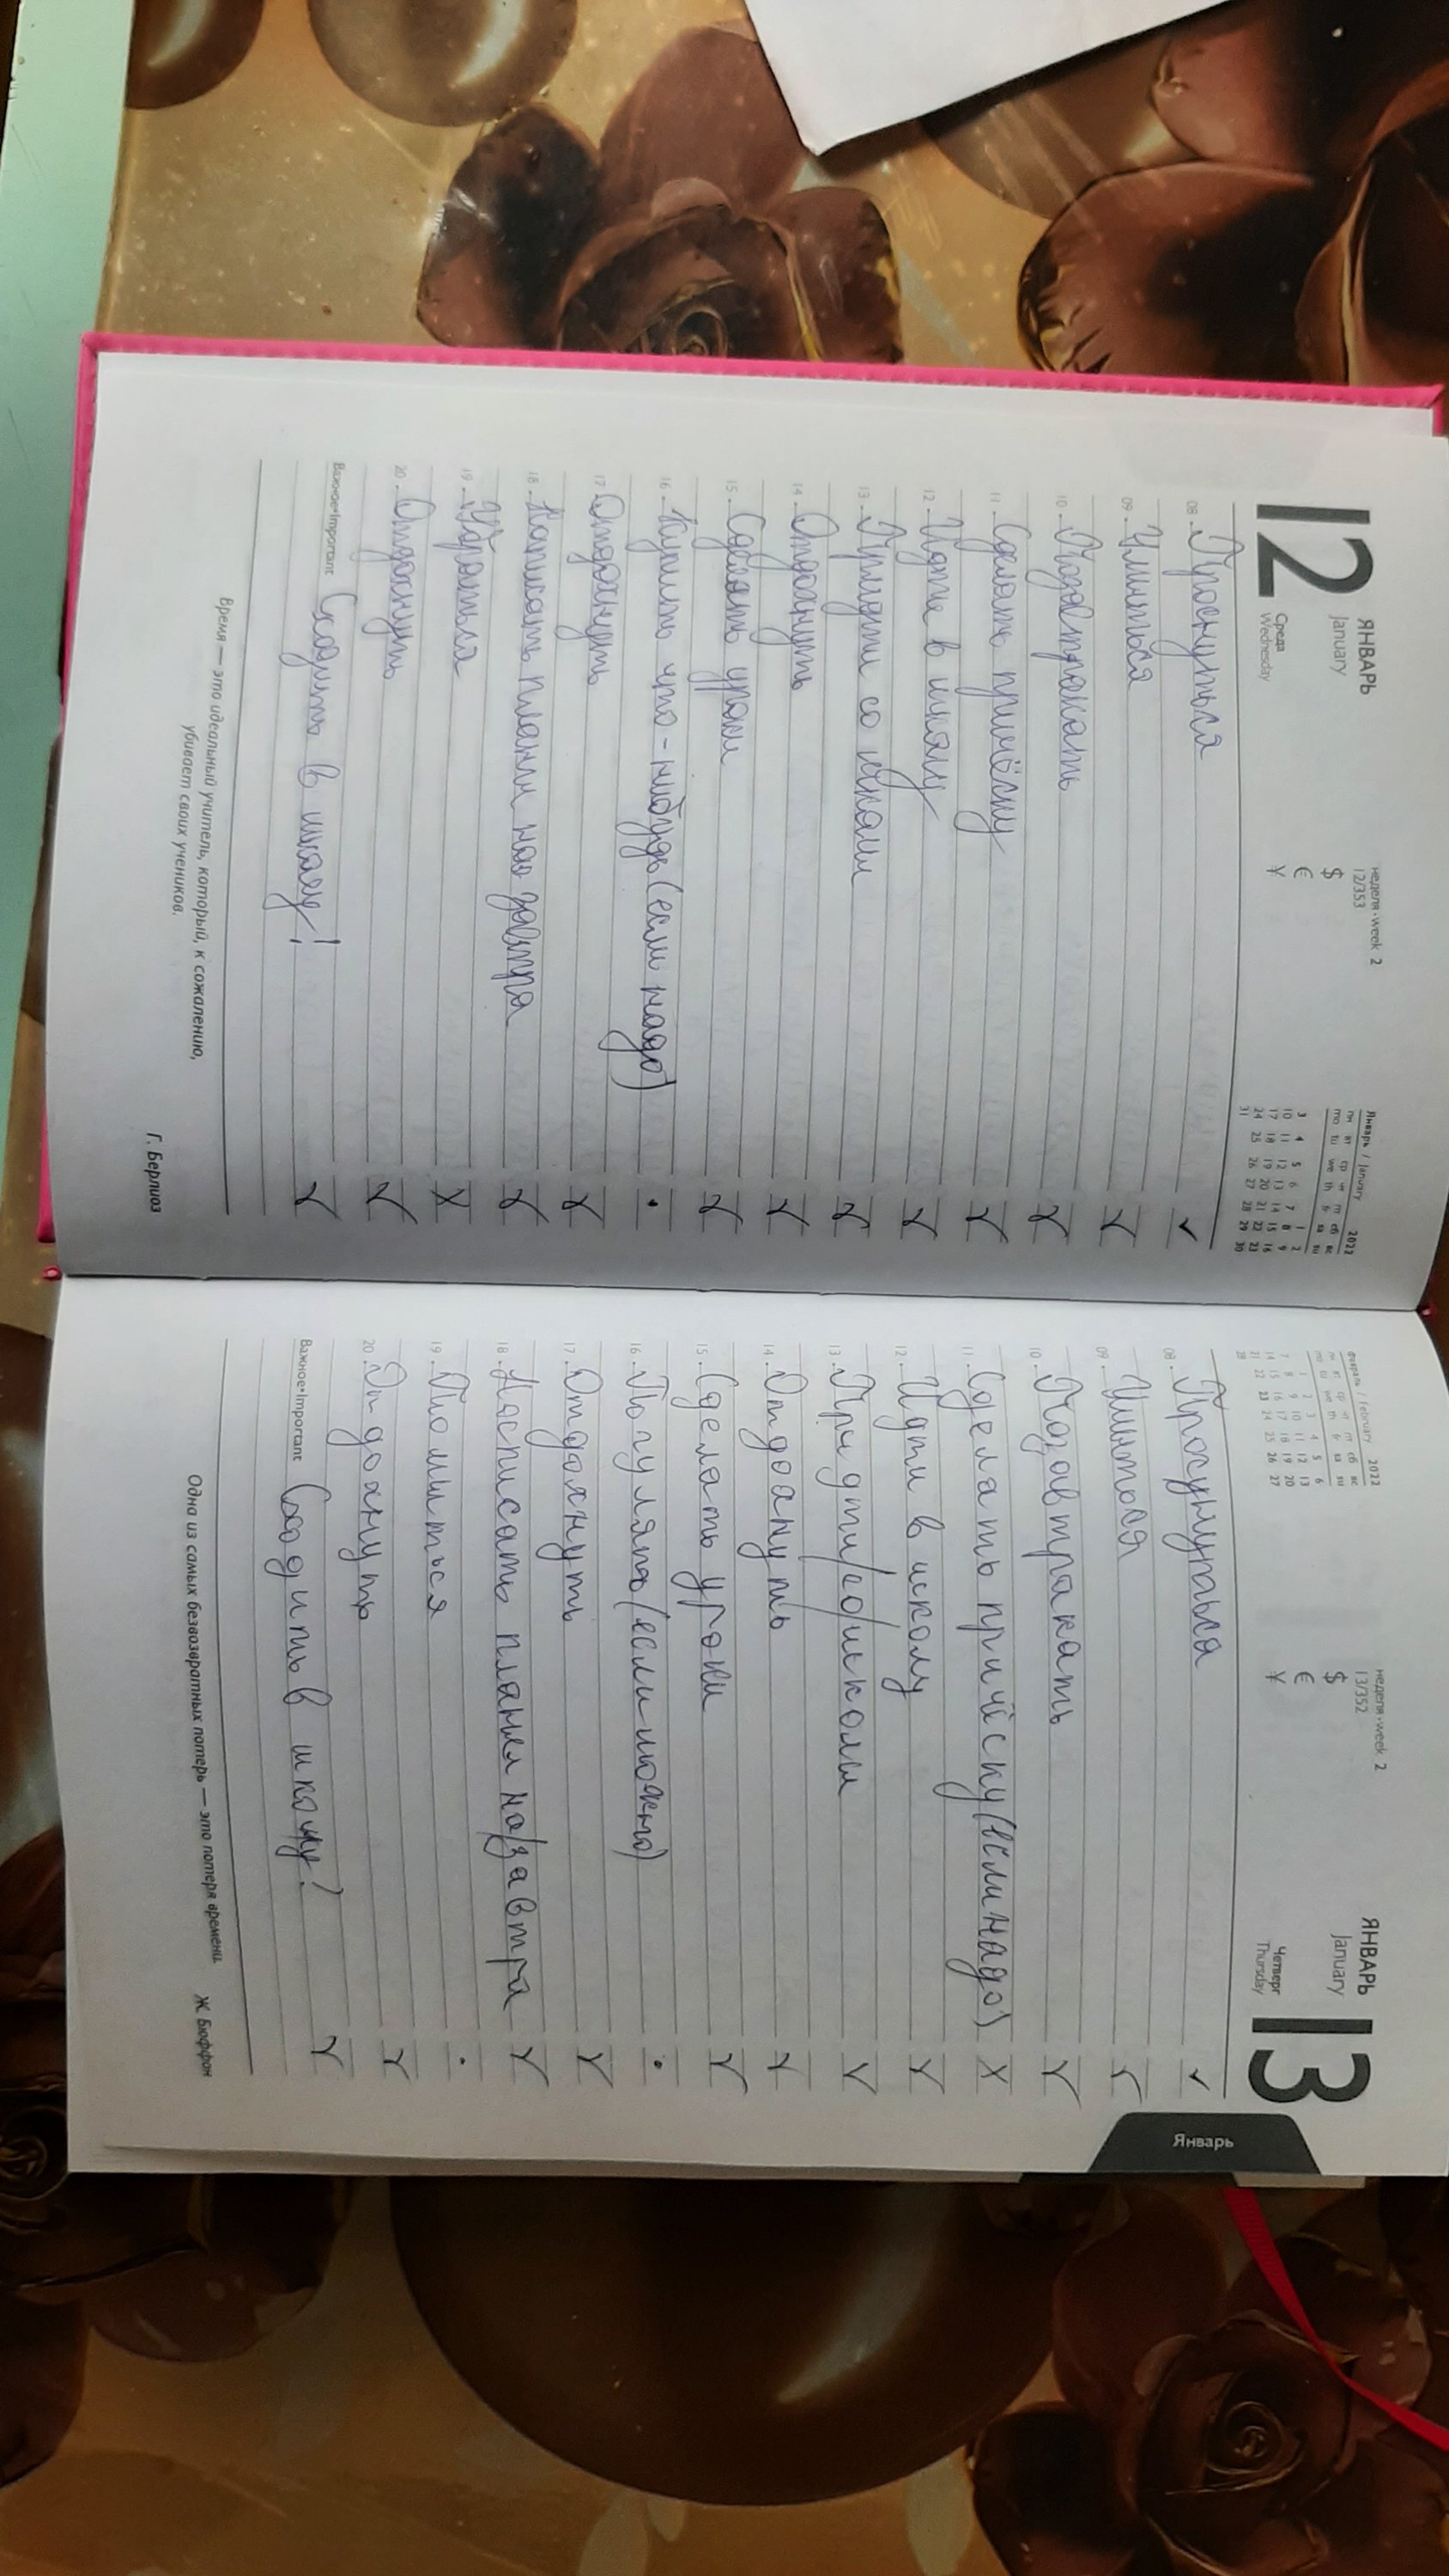 12
ЯНВАРЬ
January
Среда
Wednesday
неделя • week 2
12/353
$
€
¥
Январь / January 2022
пн вт ср чт пт сб вс
mo tu we th fr sa su
1 2
3 4 5 6 7 8 9
10 11 12 13 14 15 16
17 18 19 20 21 22 23
24 25 26 27 28 29 30
31
08 Проснуться
09 Умыться
10 Позавтракать
11 Сделать причёску
12 Идти в школу
13 Придти со школы
14 Отдохнуть
15 Сделать уроки
16 Купить что-нибудь (если надо)
17 Отдохнуть
18 Написать планы на завтра
19 Убраться
20 Отдохнуть
Важное•Important Сходить в школу!
Время — это идеальный учитель, который, к сожалению,
убивает своих учеников.
Г. Берлиоз
февраль / February 2022
пн вт ср чт пт сб вс
mo tu we th fr sa su
1 2 3 4 5 6
7 8 9 10 11 12 13
14 15 16 17 18 19 20
21 22 23 24 25 26 27
28
неделя • week 2
13/352
$
€
¥
ЯНВАРЬ
January
Четверг
Thursday
13
Январь
08 Проснуться
09 Умыться
10 Позавтракать
11 Сделать причёску (если надо)
12 Идти в школу
13 Придти/со/школы
14 Отдохнуть
15 Сделать уроки
16 Погулять (если можно)
17 Отдохнуть
18 Написать планы на/завтра
19 Помыться
20 Отдохнуть
Важное•Important Сходить в школу!
Одна из самых безвозвратных потерь — это потеря времени.
Ж. Бюффон